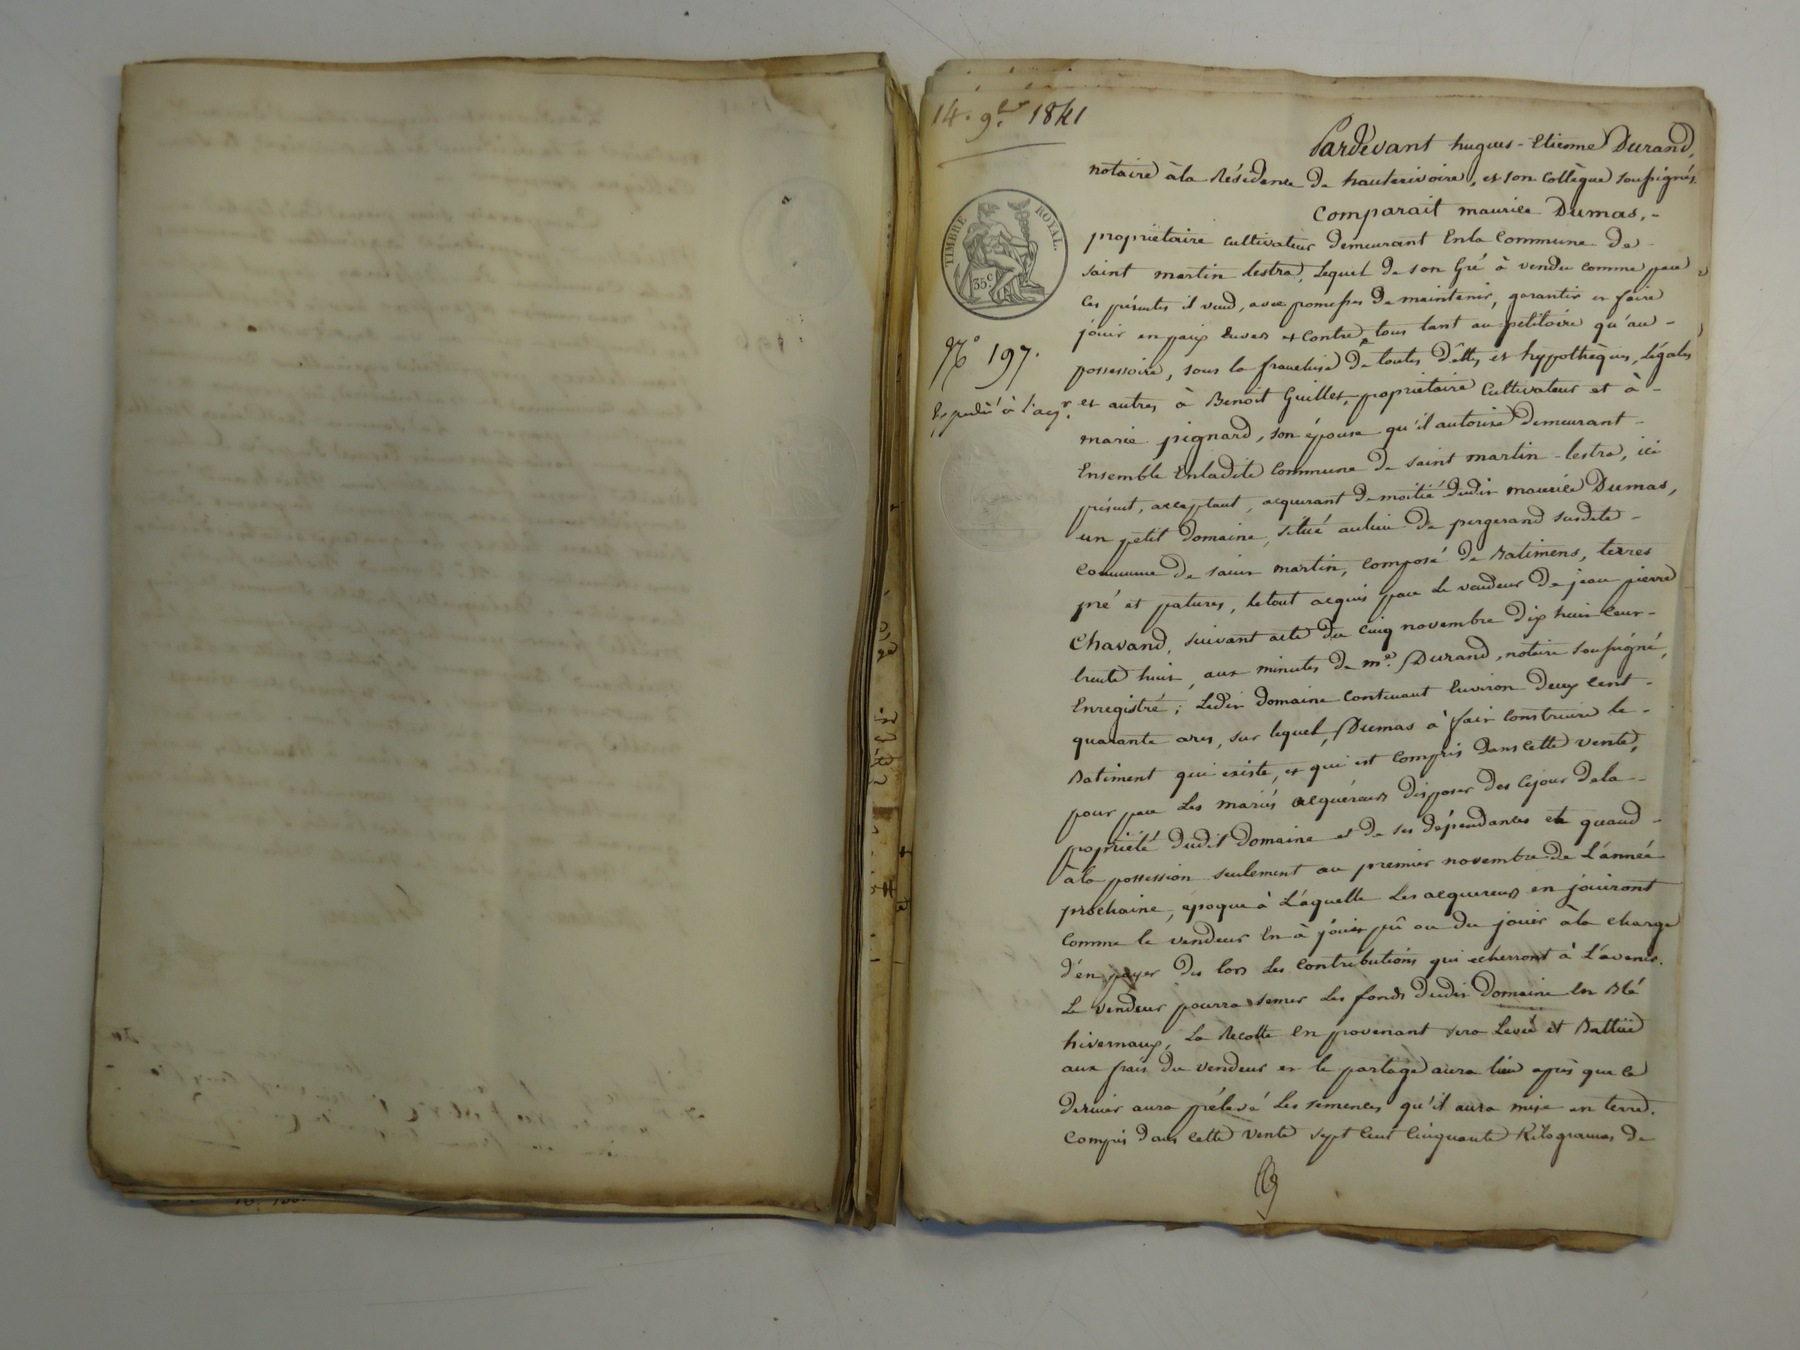 14. 9bre 1841
TIMBRE ROYAL.
35c
No 197.
Expédié à l'aqr.
Pardevant hugues-Etienne Durand,
notaire à la Résidence de hauterivoire, et son Collègue soussignés.
Comparait maurice Dumas, -
propriétaire cultivateur demeurant Enla Commune de -
saint martin lestra, Lequel de son Gré à vendu comme par
Ces présentes il vend, avec promesses de maintenir, garantir et faire
jouir en paix Envers et Contre tous tant au petitoire qu'au -
possessoire, sous la franchise de toutes dettes et hypothèques, Légales
et autres à Benoit Guillet, propriétaire Cultivateur et à -
marie pignard, son épouse qu'il autorise demeurant -
Ensemble Enladite Commune de saint martin-lestra, ici
présent, acceptant, acquerant de moitié dudit maurice Dumas,
un petit domaine, situé aulieu de pergerand susdite -
Commune de saint martin, Composé de Batimens, terres
pré et patures, letout acquis par le vendeur de jean pierre
Chavand, suivant acte du Cinq novembre dix huit Cent -
trente huit, aux minutes de me. Durand, notaire soussigné,
Enregistré; Ledit domaine contenant Environ deux cent -
quarante ares, sur lequel, Dumas à fait Construire le -
Batiment qui existe, et qui est compris dans cette vente,
pour par Les mariés acquéreurs disposer des Cejour dela -
propriété dudit domaine et de ses dépendances et quand -
à la possession seulement au premier novembre de L'année
prochaine, époque à L'aquelle Les acquereurs en jouiront
Comme le vendeur En à jouir pû ou du jouir à la charge
d'en payer des lors Les Contributions qui echerront à L'avenir.
Le vendeur pourra semer Les fonds dudit domaine En Blé
hivernaux, La Recolte En provenant sera Levée et Battüe
aux frais du vendeur et le partage aura lieu après que ce
dernier aura prélevé Les semences qu'il aura mise en terre.
Compris dans Cette vente sept Cent Cinquante Kilogrames de